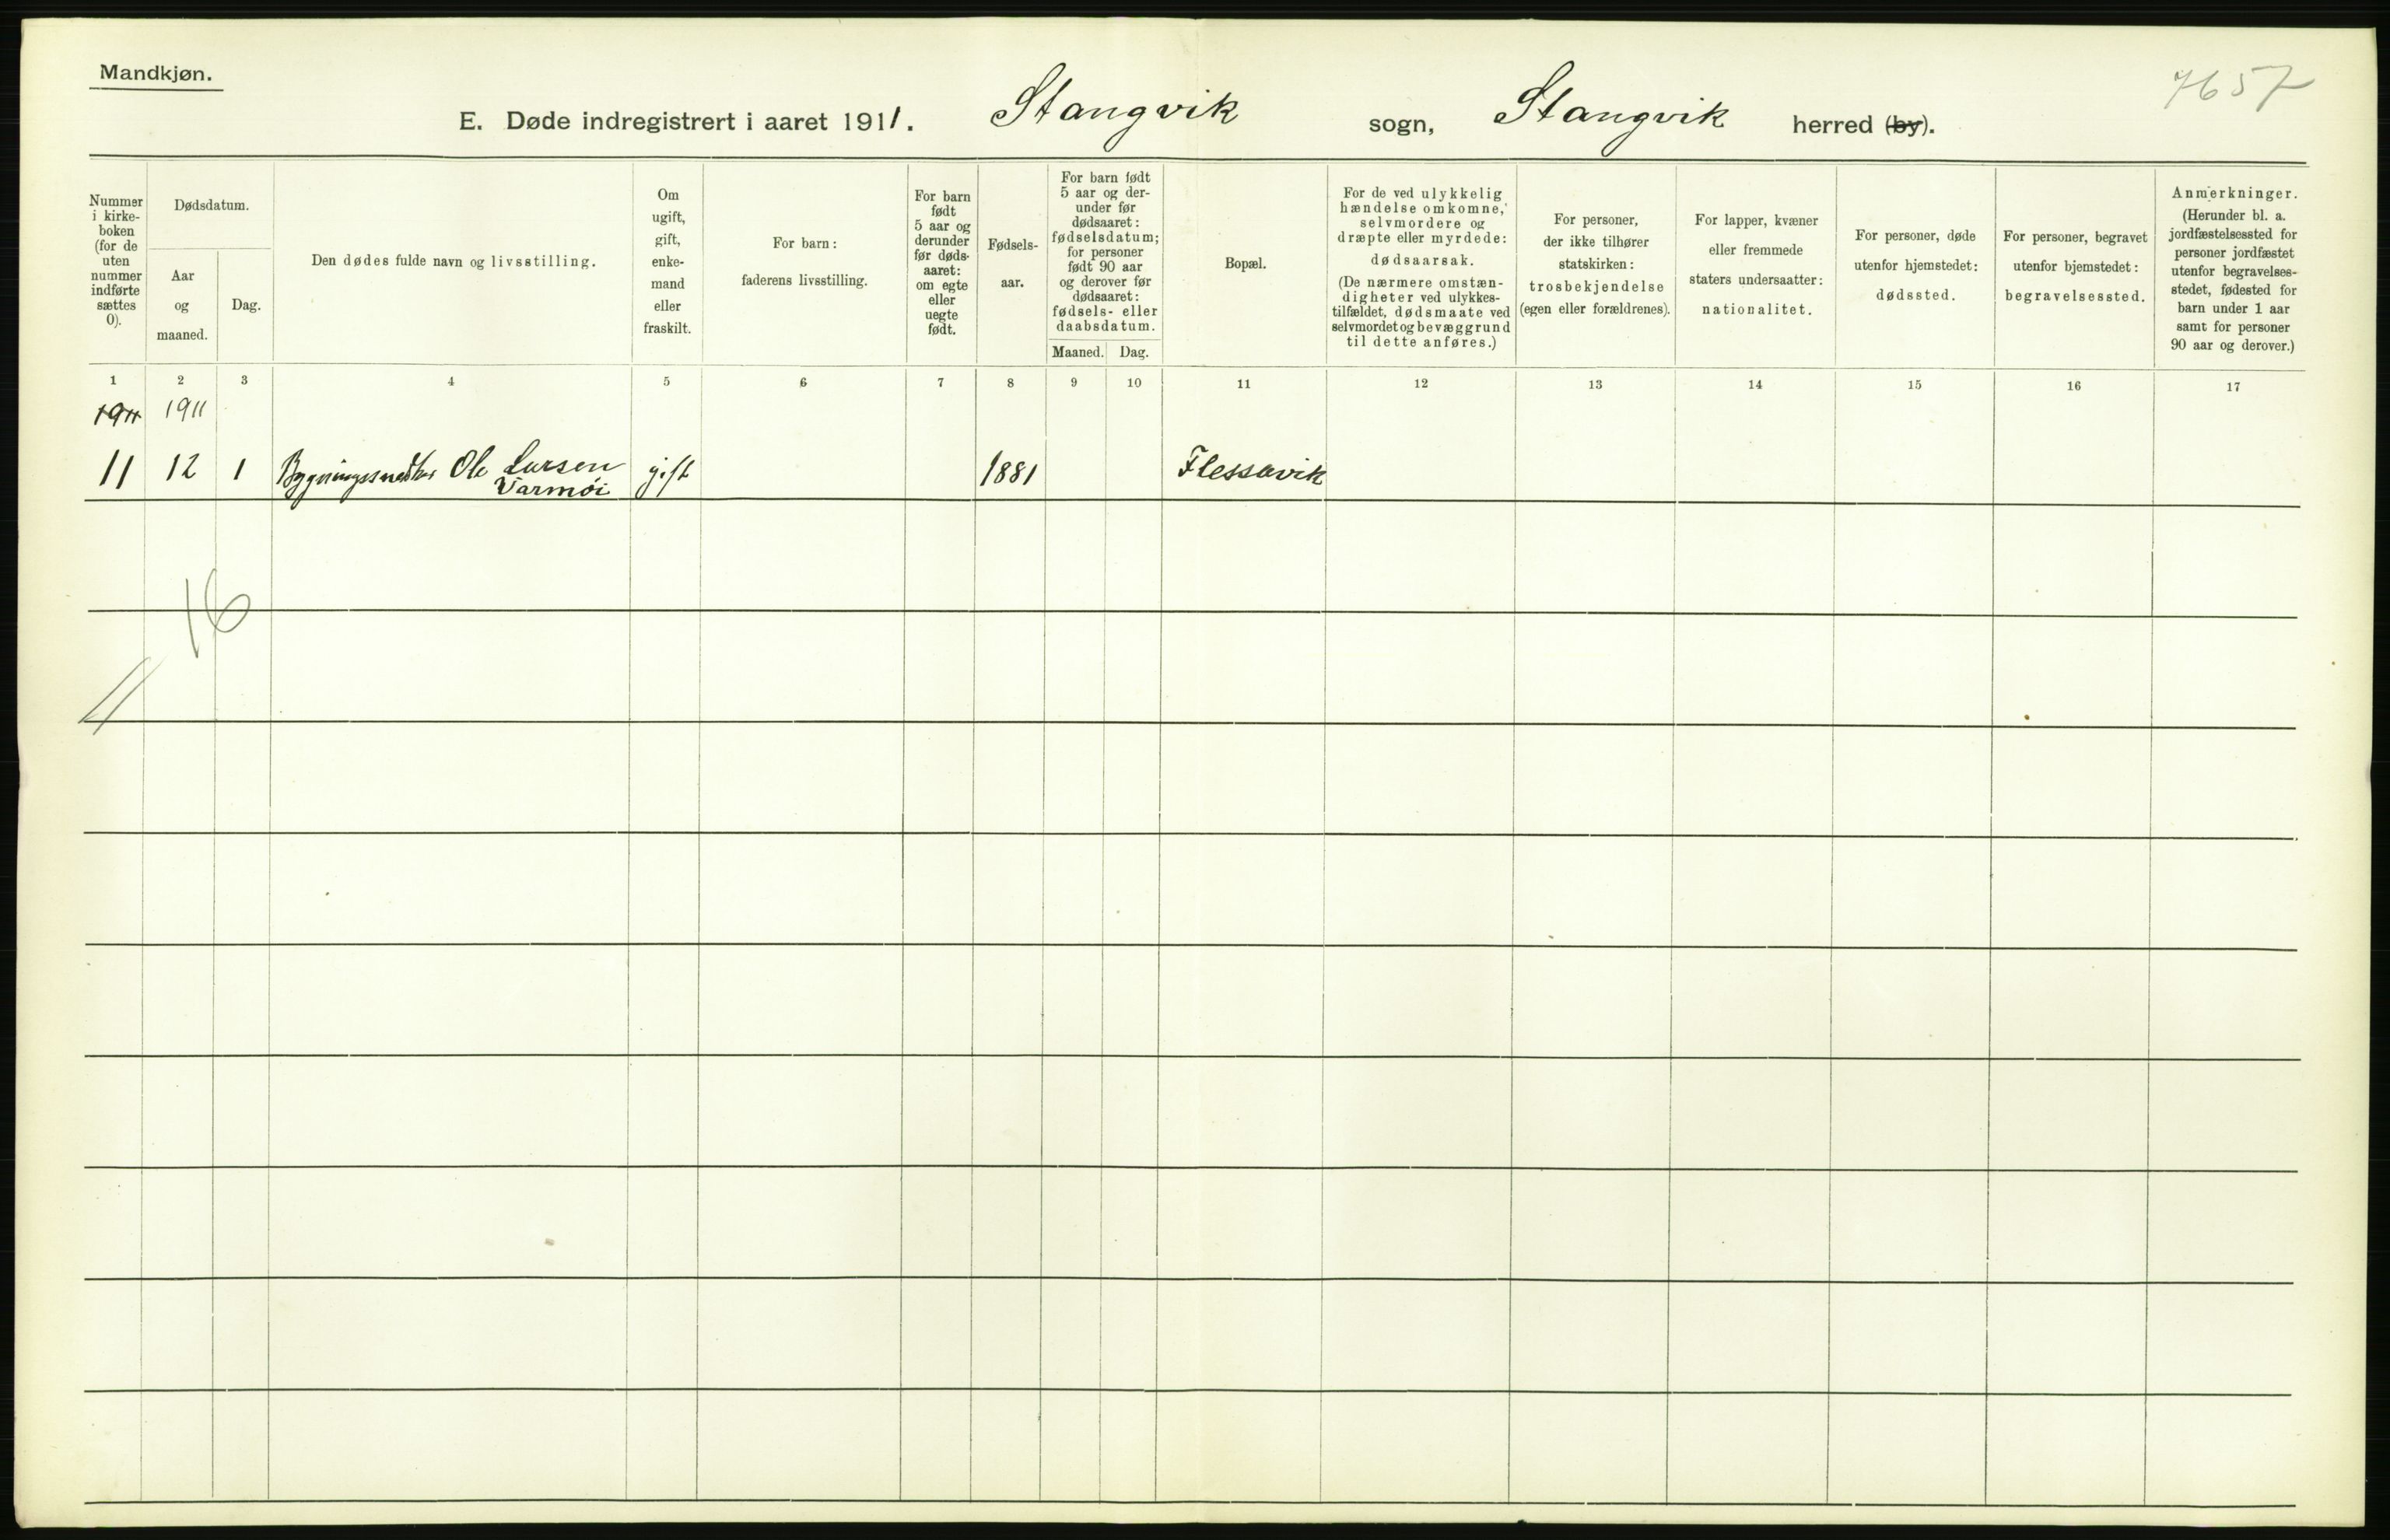 Mandkjøn.
7657
E. Døde indregistrert i aaret 1911. Stangvik sogn, Stangvik herred (by).
Nummer
i kirke-
boken
(for de
uten
nummer
indførte
sættes
0).
Dødsdatum.
Aar
og
maaned.
Dag.
Den dødes fulde navn og livsstilling.
Om
ugift,
gift,
enke-
mand
eller
fraskilt.
For barn:
faderens livsstilling.
For barn
født
5 aar og
derunder
før døds-
aaret:
om egte
eller
uegte
født.
Fødsels-
aar.
For barn født
5 aar og der-
under før
dødsaaret:
fødselsdatum;
for personer
født 90 aar
og derover før
dødsaaret:
fødsels- eller
daabsdatum.
Maaned. Dag.
Bopæl.
For de ved ulykkelig
hændelse omkomne,
selvmordere og
dræpte eller myrdede:
dødsaarsak.
(De nærmere omstæn-
digheter ved ulykkes-
tilfældet, dødsmaate ved
selvmordet og bevæggrund
til dette anføres.)
For personer,
der ikke tilhører
statskirken:
trosbekjendelse
(egen eller forældrenes).
For lapper, kvæner
eller fremmede
staters undersaatter:
nationalitet.
For personer, døde
utenfor hjemstedet:
dødssted.
For personer, begravet
utenfor bjemstedet:
begravelsessted.
Anmerkninger.
(Herunder bl. a.
jordfæstelsessted for
personer jordfæstet
utenfor begravelses-
stedet, fødested for
barn under 1 aar
samt for personer
90 aar og derover.)
1 2 3 4 5 6 7 8 9 10 11 12 13 14 15 16 17
1911 1911
11 12 1 Bygningssnedker Ole Larsen gift 1881 Flessavik
Varmöi
16
11